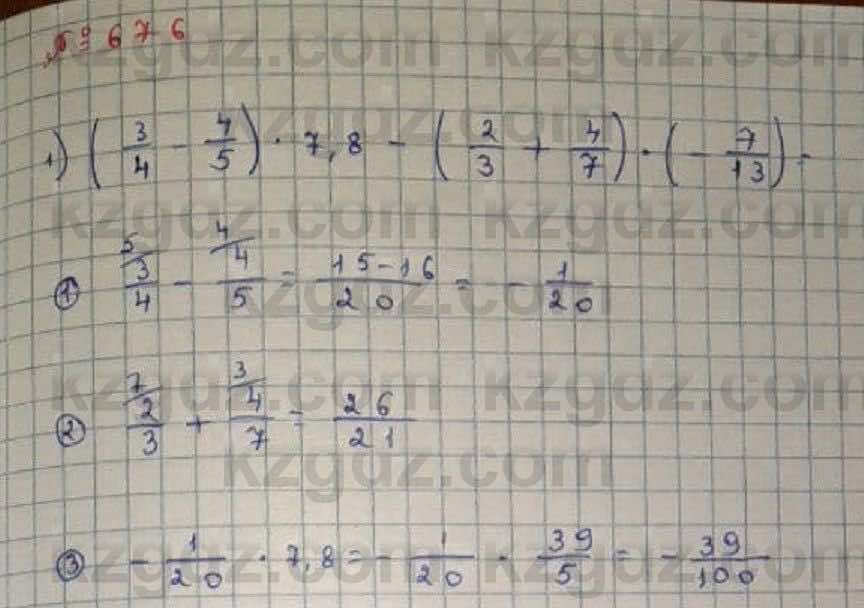 № 676
1) (3/4 - 4/5) · 7,8 - (2/3 + 4/7) · (- 7/13) =
① 5/ 3/4 - 4/ 4/5 = 15-16/20 = - 1/20
② 7/ 2/3 + 3/ 4/7 = 26/21
③ - 1/20 · 7,8 = - 1/20 · 39/5 = - 39/100
kzgdz.com kzgdz.com
kzgdz.com
kzgdz.com kzgdz.com
kzgdz.com
kzgdz.com kzgdz.com
kzgdz.com
kzgdz.com kzgdz.com